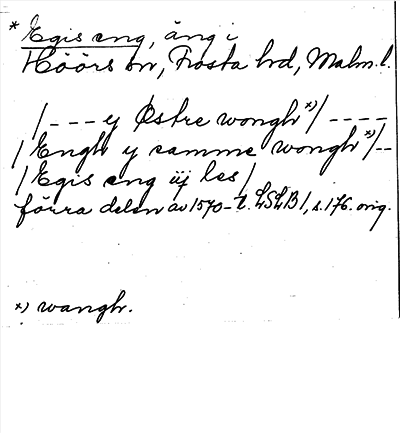 * Egis eng, äng i
Höörs sn, Frosta hd, Malm. l.
/---y Østre wongh*)/----
/Engh y samme wongh*)/--
/Egis eng iij les/
förra delen av 1570-t. LSLB 1, s. 176. orig.
*) wangh.